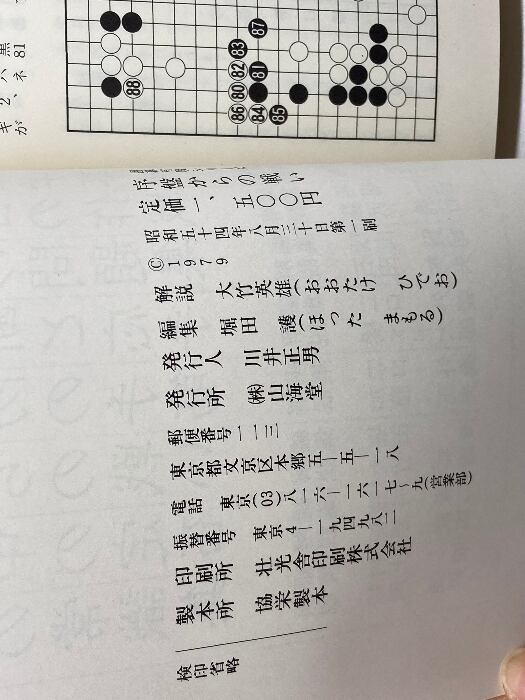 黒81
ハネ
2、
ギが
87
83
88
82
81
80
86
84
85
序盤からの戦い
定価一、五〇〇円
昭和五十四年八月三十日第一刷
©1979
解説 大竹英雄(おおたけ ひでお)
編集 堀田 護(ほった まもる)
発行人 川井正男
発行所 ㈱山海堂
郵便番号一一三
東京都文京区本郷五―五―一八
電話 東京(03)八一六―一六一七~九(営業部)
振替番号 東京4―一九四九八二
印刷所 壮光舎印刷株式会社
製本所 協栄製本
検印省略